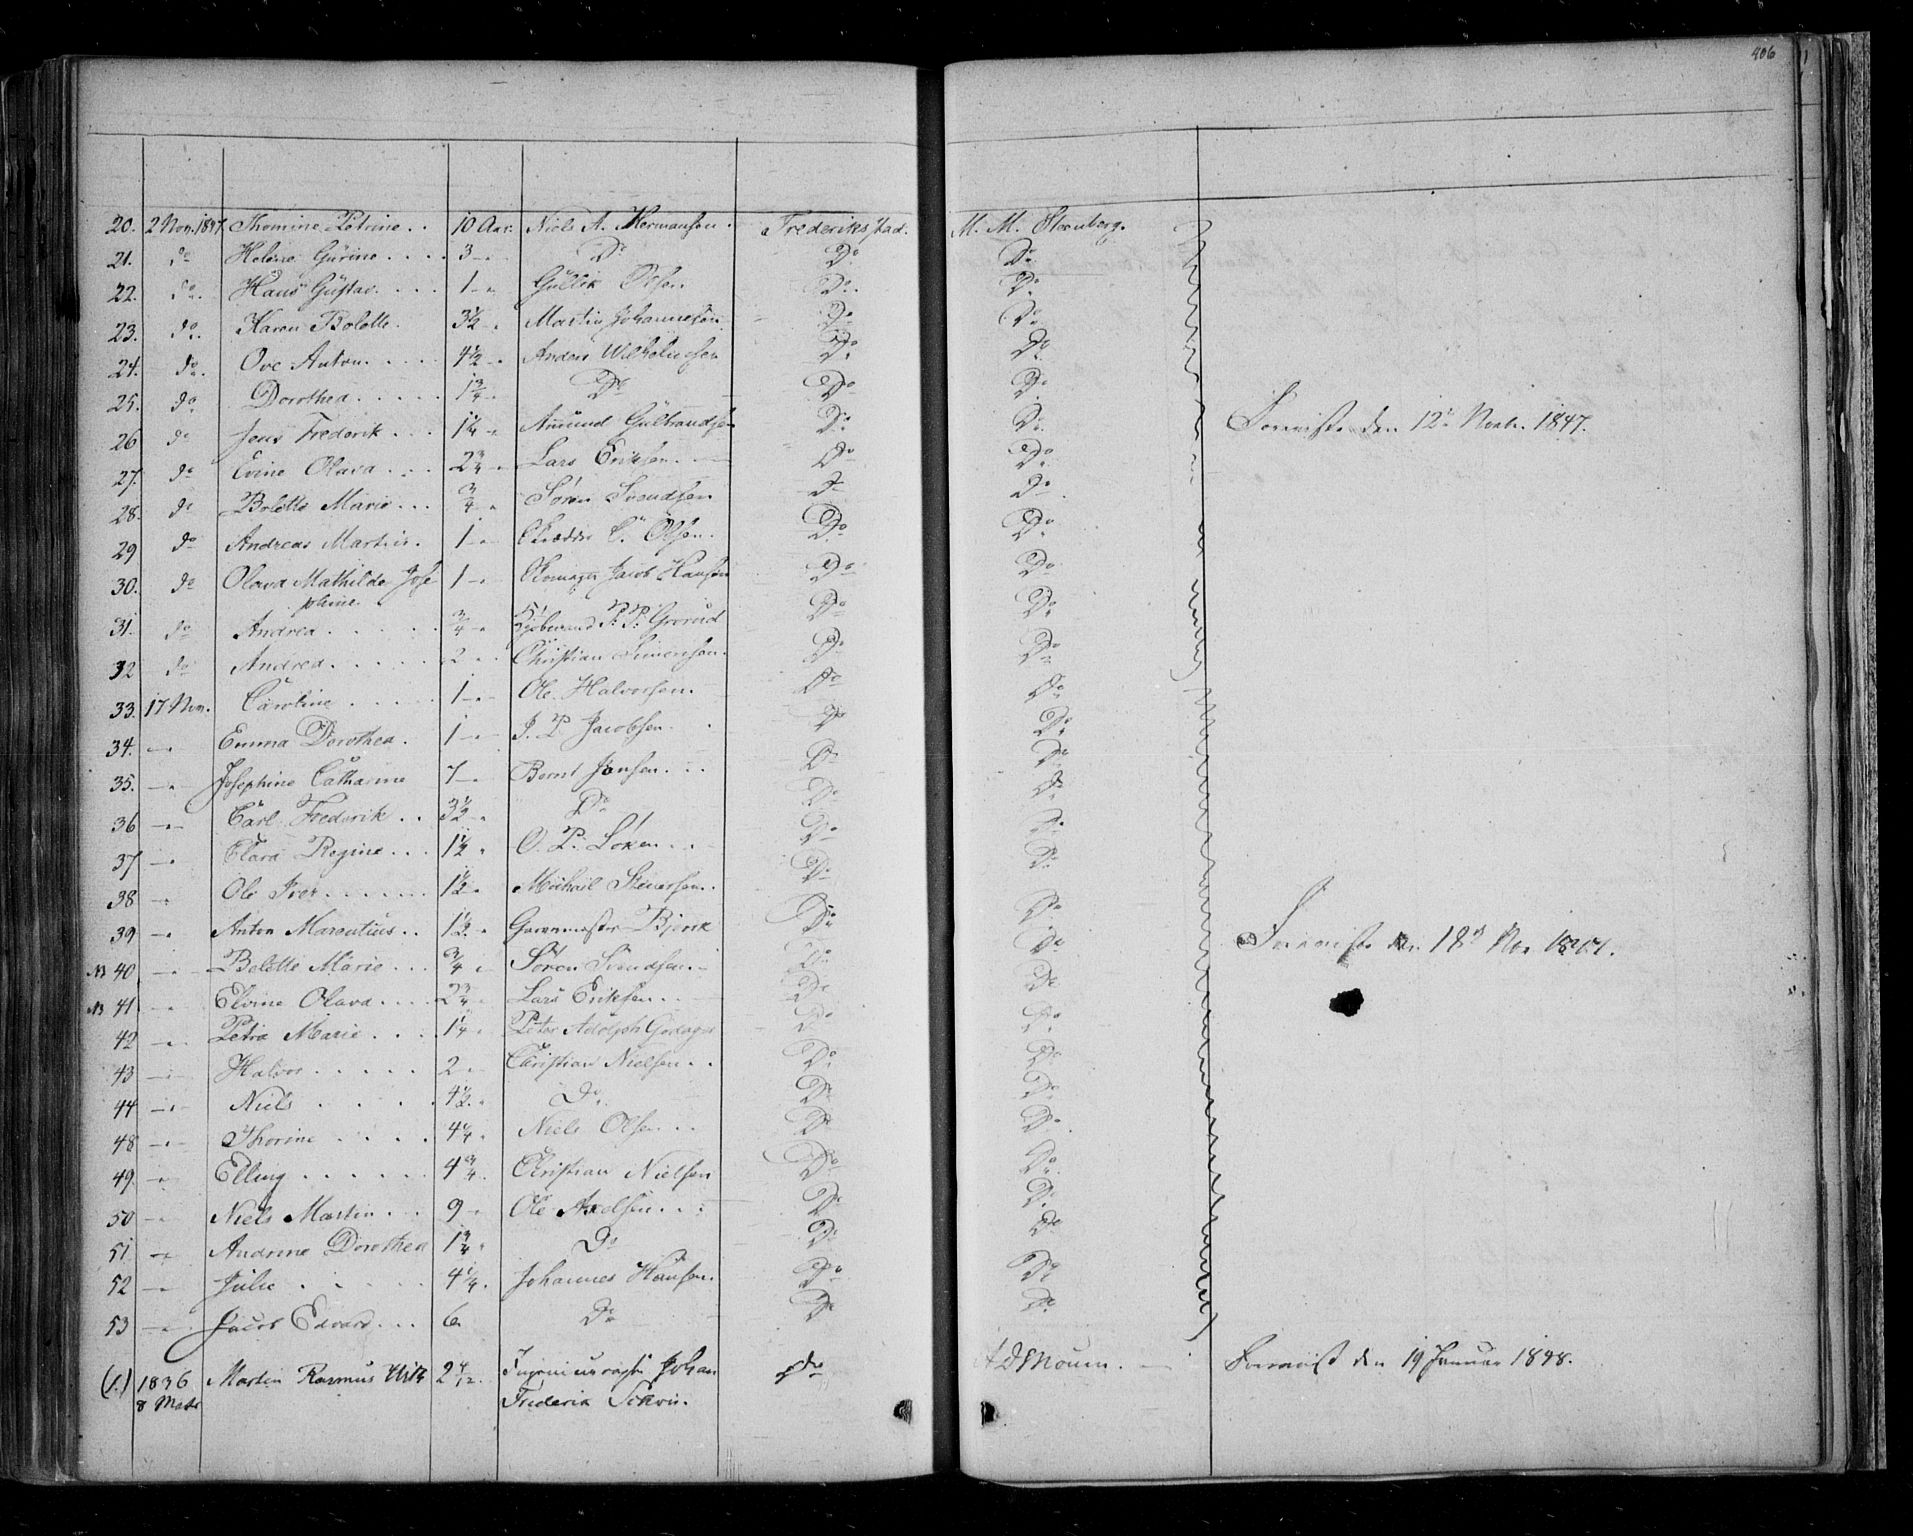 406
20. 2 Nov. 1847. Thomine Petrine . . 10 Aar. Niels A. Hermansen. Frederikstad. M. M. Steenberg.
21. do Helene Gurine . . . . 3 Do Do Do
22. do Hans Gustav. . . . 1 Gullik Olsen Do Do
23. do Karen Bolette. 3½ Martin Johannesen Do Do
24. do Ove Anton. . . . . 4½ Anders Wilhelmsen Do Do
25. do Dorothea . . . . . 1¾ Do Do Do
26 do Jens Frederik . . . 1¼ Amund Gulbrandsen Do Do Forevist den 12te Novbr. 1847.
27. do Evine Olava . . . 2¾ Lars Eriksen. Do Do
28. do Bolette Marie . . . ¾ Søren Svendsen Do Do
29 do Andreas Martin. 1 C. Olsen. Do Do
30. do Olava Mathilde Jose 1 Jacob Hansen Do Do
phine.
31. do Andrea . . . . . ¾ P. P. Grorud Do Do
32 do Andrea . . . . . 2 Christian Simensen. Do Do
33. 17 Nov. Caroline . . . . . 1 Ole Halvorsen. Do Do
34. Emma Dorothea . 1 J. P. Jacobsen. Do Do
35. Josephine Catharine 7 Bernt Jensen. . . Do Do
36 Carl Frederik . . 3½ Do Do Do
37 Clara Regine . . . 1½ O. P. Løken . . . Do Do
38 Ole Iver . . . . . . 1½ Michail Siversen. Do Do
39 Anton Marentius . . 1½ Garvermester Bjerck Do Do
NB 40 Bolette Marie . . . ¾ Søren Svendsen. Do Do Forevist den 18de Nov 1847.
NB 41 Elvine Olava . . . . 2¾ Lars Eriksen . . Do Do
42 Petra Marie . . . 1¼ Peter Adolph Godager Do Do
43 Halvor . . . . . 2 Christian Nielsen . . Do Do
44 Niels . . . . . 4½ Do Do Do
48 Thorine . . . . 4¼ Niels Olsen . . Do Do
49 Elling . . . . . . 4¾ Christian Nielsen Do Do
50 Niels Martin . . . 9 Ole Axelsen . . . Do Do
51 Andrine Dorothea 1¾ Do Do Do
52 Julie . . . . . 4¼ Johannes Hansen. Do Do
53 Jacob Edvard . . . 6 Do Do Do
(1.) 1836 Martin Rasmus 2 4/12. Johan do Forevist den 19 Januar 1848.
8 Frederik